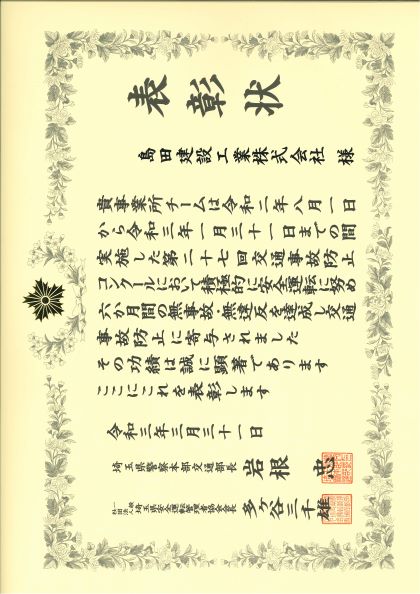 表彰状
島田建設工業株式会社 様
貴事業所チームは令和二年八月一日
から令和三年一月三十一日までの間
実施した第二十七回交通事故防止
コンクールにおいて積極的に安全運転に努め
六か月間の無事故・無違反を達成し交通
事故防止に寄与されました
その功績は誠に顕著であります
ここにこれを表彰します
令和三年三月三十一日
埼玉県警察本部交通部長 岩根 忠
一般社団法人 埼玉県安全運転管理者協会会長 多ヶ谷三千雄